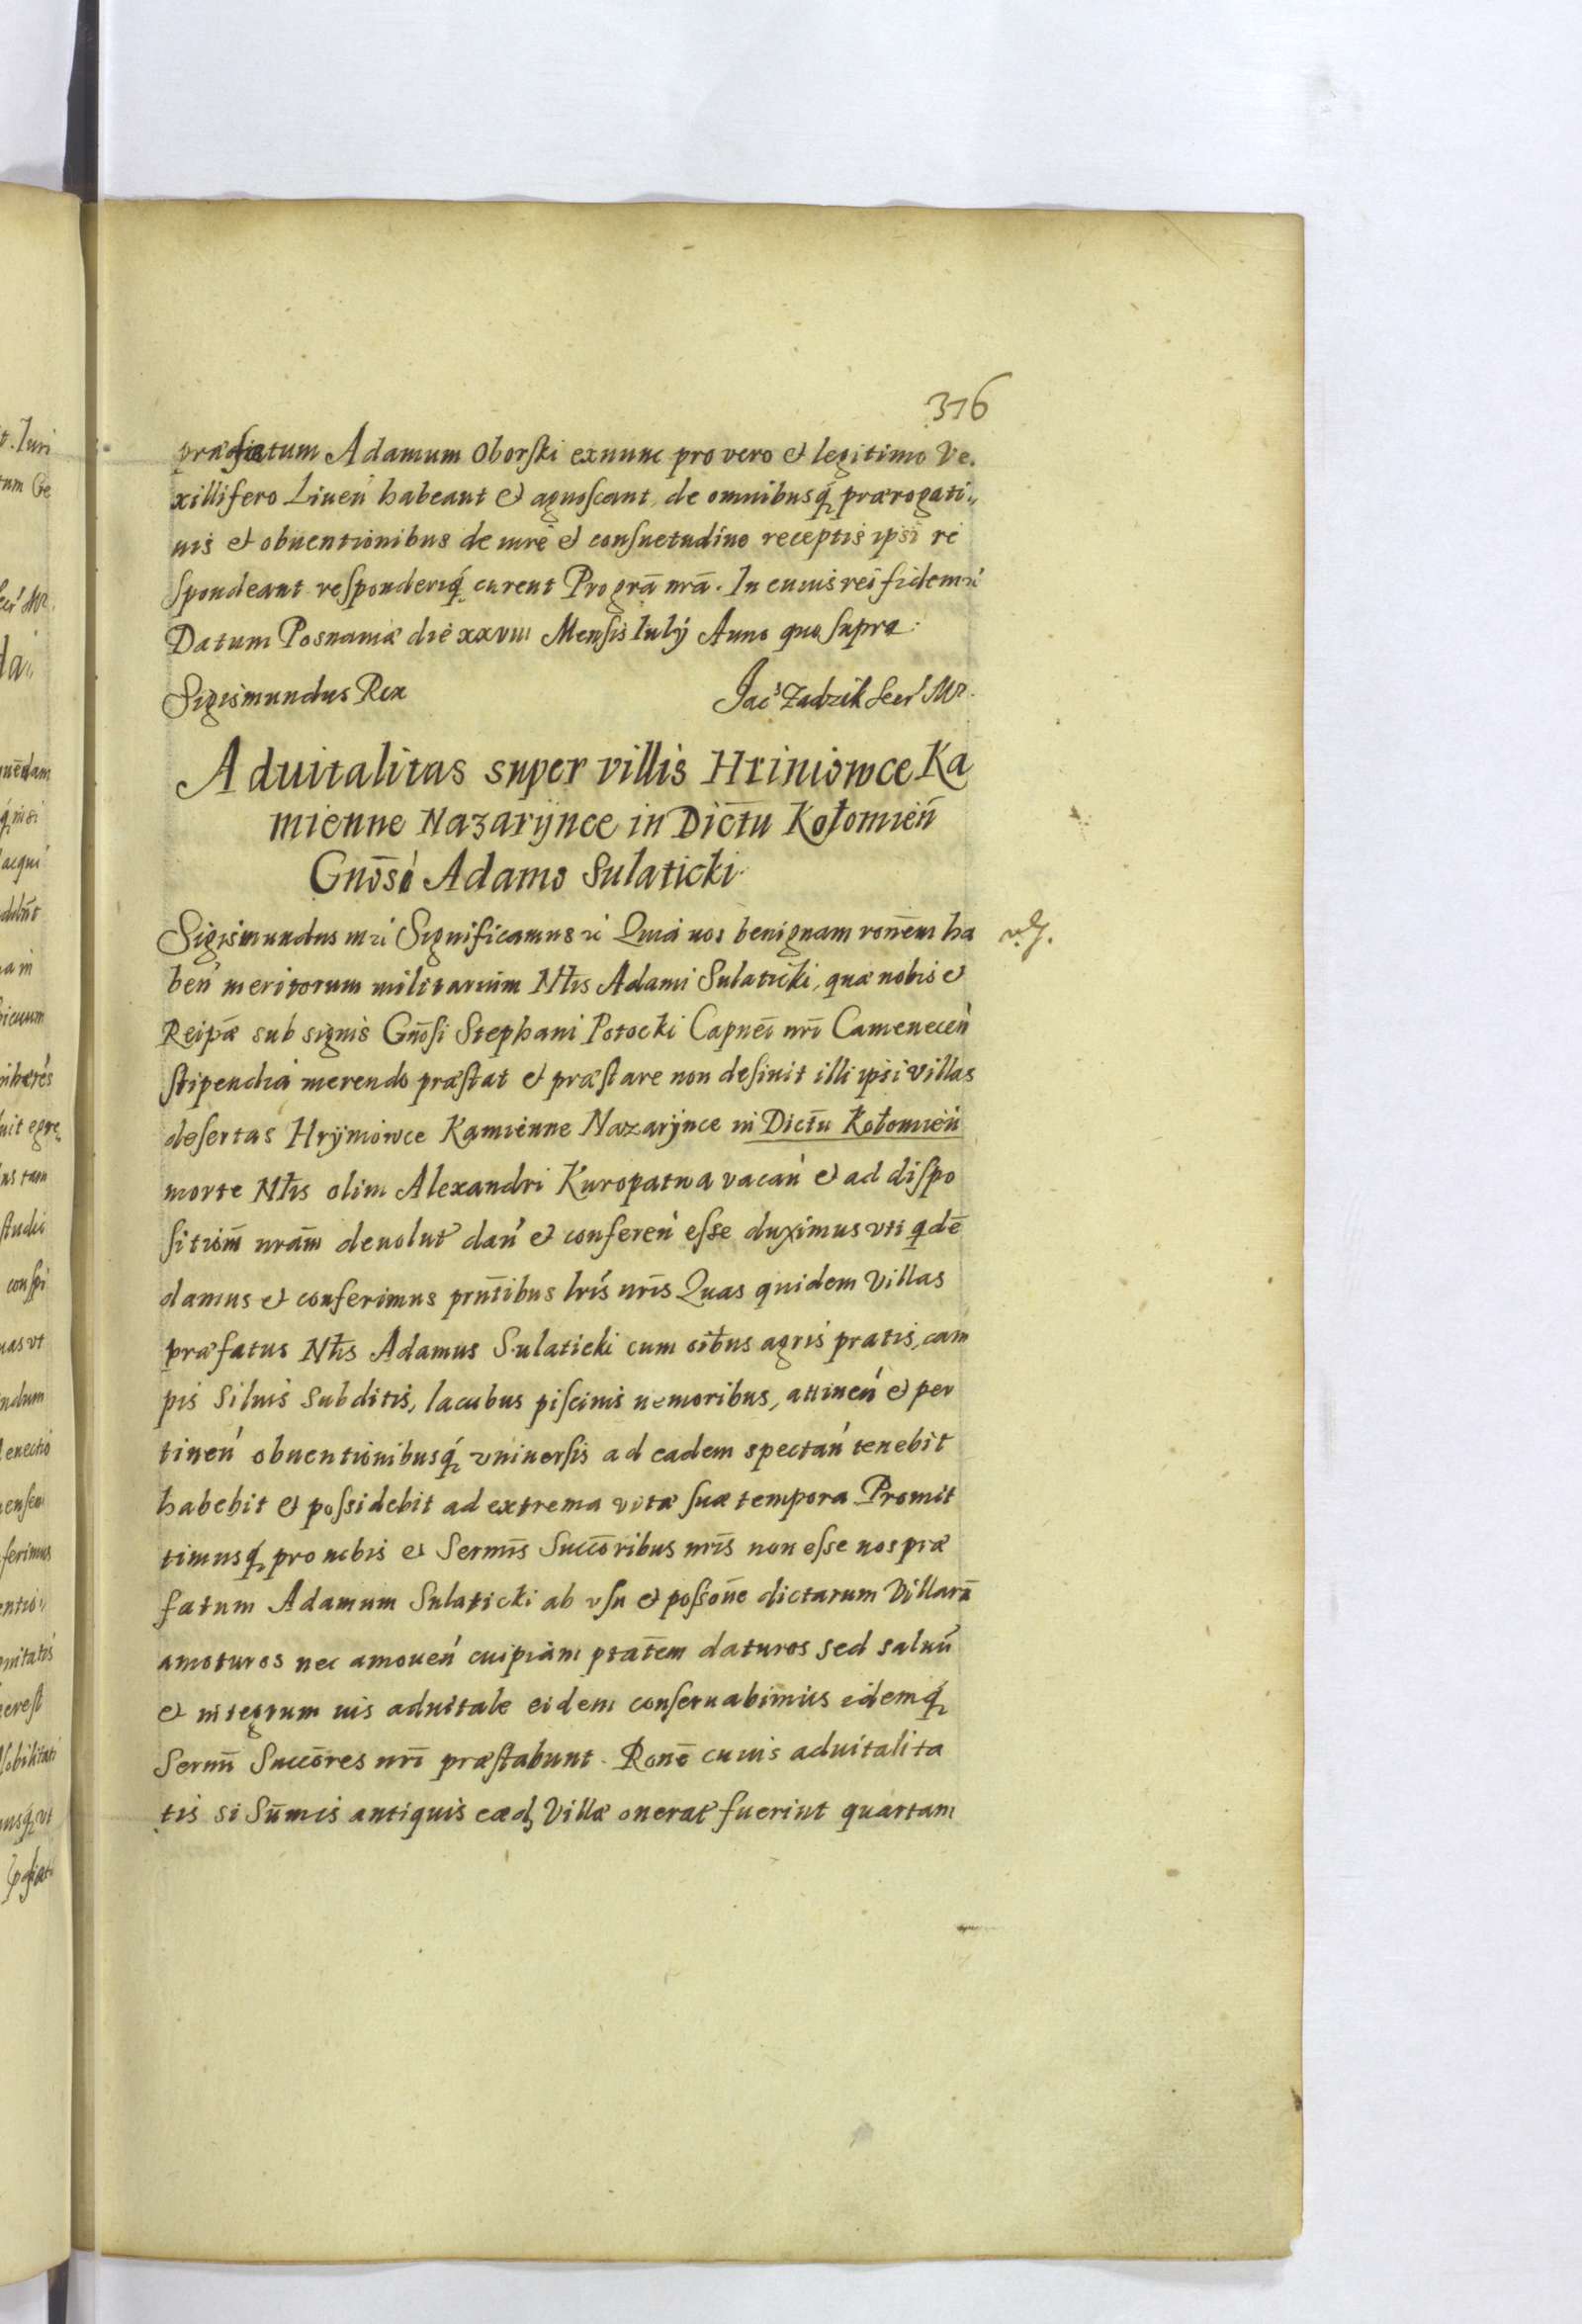 376
præfatum Adamum Oborski exnunc pro vero et legitimo Ve.
xillifero Liuen̄ habeant et agnoscant, de omnibusq́ prærogati„
uis et obuentionibus de iure et consuetudine receptis ipsi re
spondeant responderiq́ curent Pro grã nrã. In cuius rei fidem
Datum Posnaniæ die xxviii Mensis Iulij Anno quo supra.
Sigismundus Rex Jac⁹ Zadzik Secr̄ Mr.
Aduitalitas super villis Hriniowce Ka
mienne Nazarijnce in Dictu Kołomień
Gnoso Adamo Sulaticki
Sigismundus Significamus Quia nos benignam ronem ha
ben̄ meritorum militarium Nłis Adami Sulaticki, quæ nobis et
Reipæ sub signis Gnosi Stephani Potocki Capnei nri Camenecen̄
stipendia merendo præstat et præstare non desinit illi ipsi villas
desertas Hrijniowce Kamienne Nazarijnce in Dictu Kołomień
morte Nłis olim Alexandri Kuropatwa vacan̄ et ad dispo
sitiom nram deuolut dan̄ et conferen̄ esse duximus vti qdē
damus et conferimus prntibus lris nris Quas quidem Villas
præfatus Nłis Adamus Sulaticki cum oibus agris pratis, cam
pis Siluis Subditis, lacubus piscinis nemoribus, attinen̄ et per
tinen̄ obuentionibusq́ vniuersis ad eadem spectan̄ tenebit
habebit et possidebit ad extrema vitæ suæ tempora Promit
timusq́ pro nobis et Sermis Succoribus nris non esse nos præ
fatum Adamum Sulaticki ab vsu et possone dictarum Villarū
amoturos nec amouen̄ cuipiam ptatem daturos sed saluū
et integrum ius aduitale eidem conseruabimus idemq́
Sermi Succores nri præstabunt. Ronē cuius aduitalita
tis si Sumis antiquis eæd Villæ onerat fuerint quartam